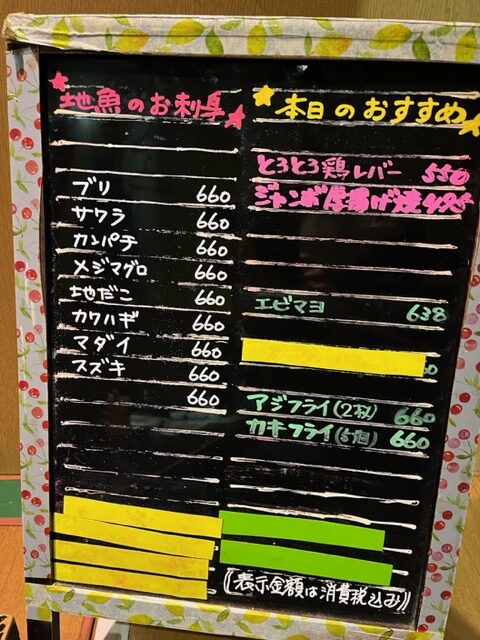 地魚のお刺身
ブリ 660
サワラ 660
カンパチ 660
メジマグロ 660
地だこ 660
カワハギ 660
マダイ 660
スズキ 660
660
本日のおすすめ
とろとろ鶏レバー 550
ジャンボ厚揚げ焼
エビマヨ 638
アジフライ(2枚) 660
カキフライ(5個) 660
(表示金額は消費税込み)